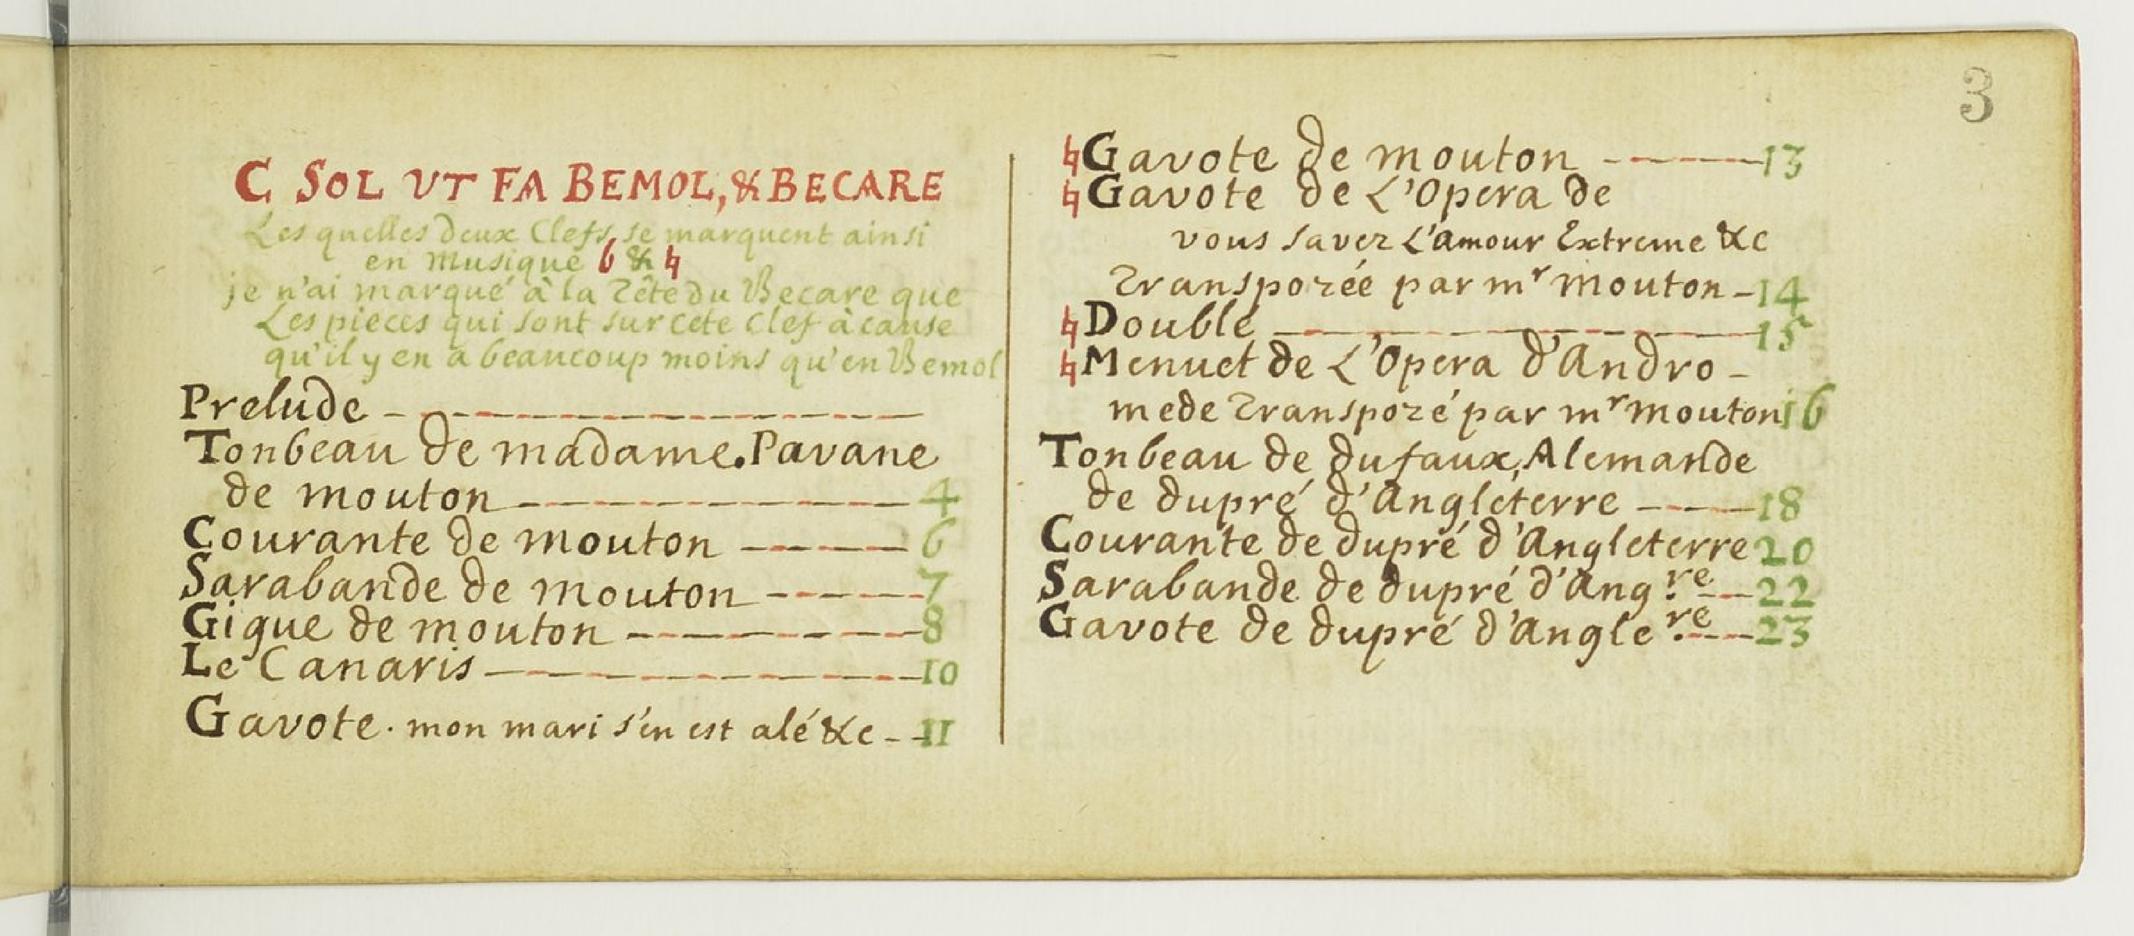 3
C SOL UT FA BEMOL, & BECARE
Les quelles deux Clefs, se marquent ainsi
en Musique ♭ & ♮
je n'ai marqué à la Tête du Becare que
Les pieces qui sont sur cete Clef à cause
qu'il y en a beaucoup moins qu'en Bemol
Prelude
Tonbeau de madame. Pavane
de mouton 4
Courante de mouton 6
Sarabande de mouton 7
Gigue de mouton 8
Le Canaris 10
Gavote. mon mari s'en est alé &c 11
♮ Gavote de mouton 13
♮ Gavote de L'Opera de
vous savez L'amour Extreme &c
Transpozée par mr mouton 14
♮ Double 15
♮ Menuet de L'Opera d'Andro-
mede Transpozé par mr mouton 16
Tonbeau de dufaux, Alemande
de dupré d'Angléterre 18
Courante de dupré d'Angleterre 20
Sarabande de dupré d'Ang.re 22
Gavote de dupré d'Angle.re 23